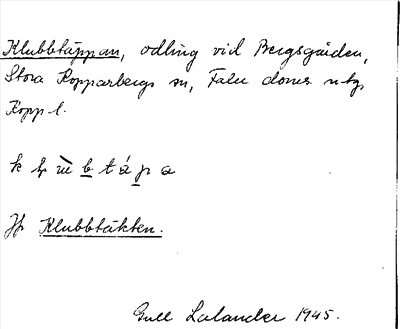 Klubbtäppan, odling vid Bergsgården,
Stora Kopparbergs sn, Falu doms. utg,
Kopp l.
k b t á p a
Jfr Klubbtäkten.
Gull Lalander 1945.